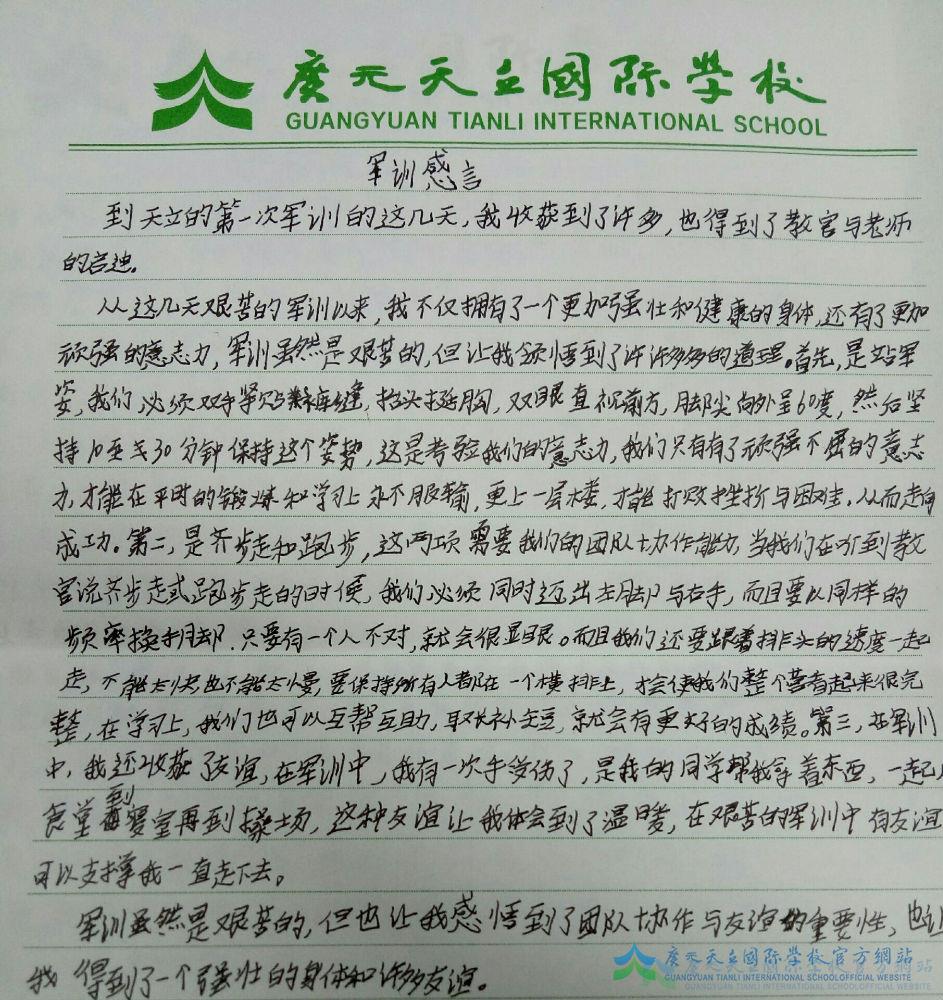 廣元天立國际學校
GUANGYUAN TIANLI INTERNATIONAL SCHOOL
军训感言
到天立的第一次军训的这几天,我收获到了许多,也得到了教官与老师
的启迪。
从这几天艰苦的军训以来,我不仅拥有了一个更加强壮和健康的身体,还有了更加
顽强的意志力,军训虽然是艰苦的,但让我领悟到了许许多多的道理。首先,是站军
姿,我们必须双手紧贴裤缝,抬头挺胸,双眼直视前方,脚尖向外呈60度,然后坚
持10至30分钟保持这个姿势,这是考验我们的意志力,我们只有有了顽强不屈的意志
力,才能在平时的锻炼和学习上永不服输,更上一层楼,才能打败挫折与困难,从而走向
成功。第二,是齐步走和跑步,这两项需要我们的团队协作能力,当我们在听到教
官说齐步走或跑步走的时候,我们必须同时迈出左脚与右手,而且要以同样的
频率换手脚,只要有一个人不对,就会很显眼。而且我们还要跟着排头的速度一起
走,不能太快也不能太慢,要保持所有人都在一个横排上,才会使我们整个营看起来很完
整,在学习上,我们也可以互帮互助,取长补短,就会有更好的成绩。第三,在军训
中,我还收获了友谊,在军训中,我有一次手受伤了,是我的同学帮我拿着东西,一起从
食堂到寝室再到操场,这种友谊让我体会到了温暖,在艰苦的军训中有友谊
可以支撑我一直走下去。
军训虽然是艰苦的,但也让我感悟到了团队协作与友谊的重要性,也让
我得到了一个强壮的身体和许多友谊。
廣元天立國际學校官方網站
GUANGYUAN TIANLI INTERNATIONAL SCHOOLOFFICIAL WEBSITE